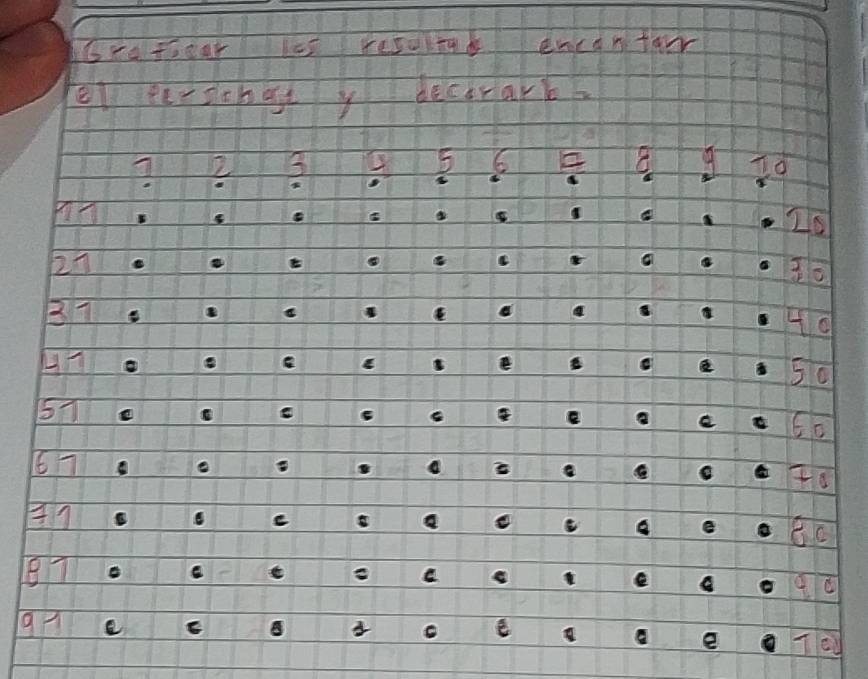 Graficar los resultad encontarr
el personaje y decorarlo
1 2 3 4 5 6 7 8 9 10
11 20
21 30
31 40
41 50
51 60
61 70
71 80
81 90
91 100